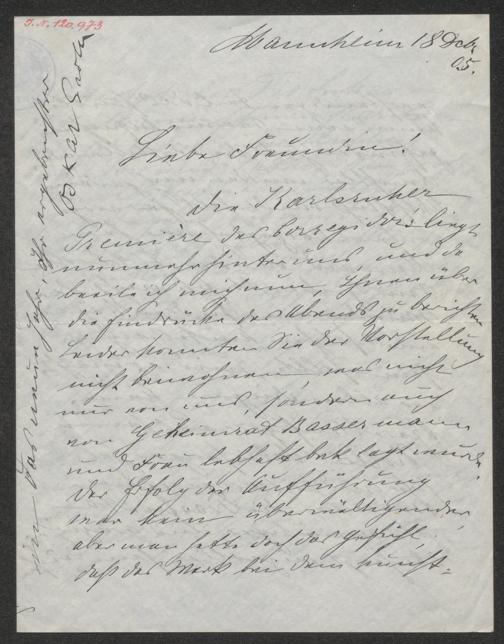 J.N. 120.973
Mannheim 18 Dcb.
05.
Liebe Freundin!
Die Karlsruher
Première des Corregidors liegt
nunmehr hinter uns und da
beeile ich mich nun, Ihnen über
die Eindrücke des Abends zu berichten
Leider konnten Sie der Vorstellung
nicht beiwohnen was nicht
nur von uns, sondern auch
von Geheimrat Bassermann
und Frau lebhaft beklagt wurde.
Der Erfolg der Aufführung
war kein überwältigender,
aber man hatte doch das Gefühl,
daß das Werk bei dem kunst-
das neue Jahr, Ihr ergebenster
Oskar